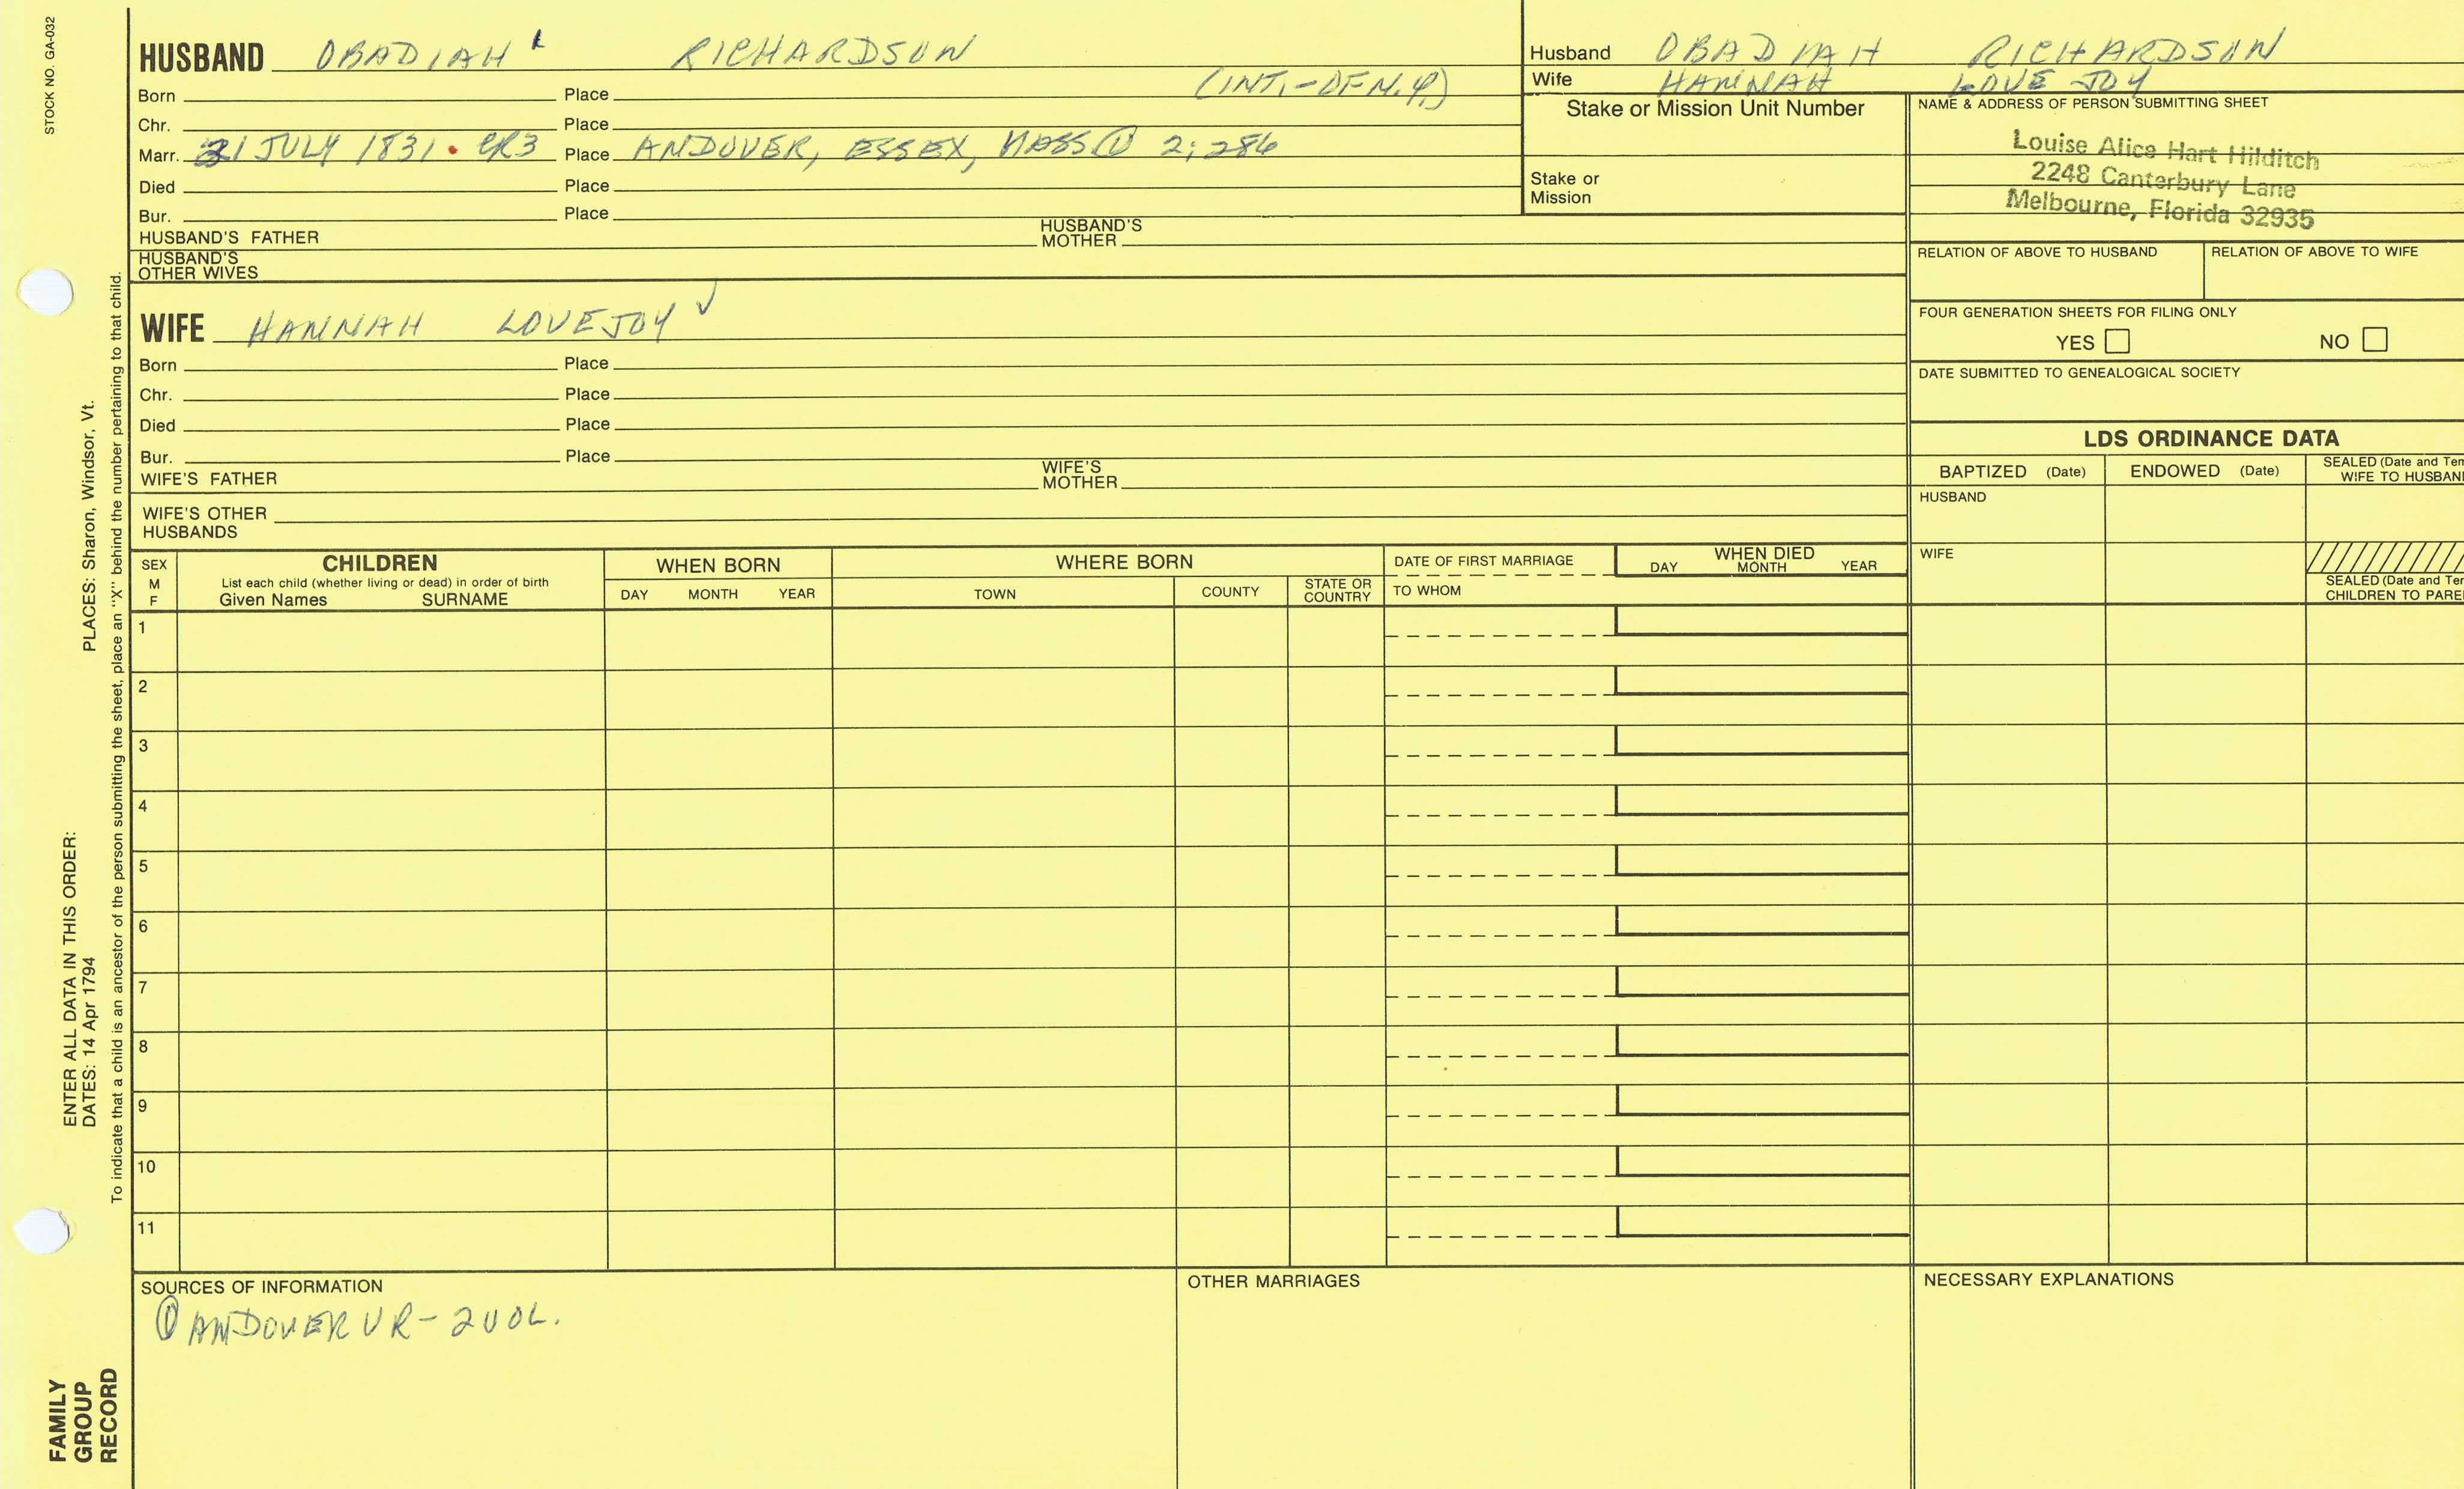 STOCK NO. GA-032
HUSBAND OBADIAH RICHARDSON
(INT.-OF N.Y.)
Born Place
Chr. Place
Marr. 31 JULY 1831 • CR3 Place ANDOVER, ESSEX, MASS ① 2; 286
Died Place
Bur. Place
HUSBAND'S FATHER HUSBAND'S MOTHER
HUSBAND'S
OTHER WIVES
Husband OBADIAH RICHARDSON
Wife HANNAH LOVEJOY
Stake or Mission Unit Number
Stake or
Mission
NAME & ADDRESS OF PERSON SUBMITTING SHEET
Louise Alice Hart Hilditch
2248 Canterbury Lane
Melbourne, Florida 32935
RELATION OF ABOVE TO HUSBAND RELATION OF ABOVE TO WIFE
FOUR GENERATION SHEETS FOR FILING ONLY
YES NO
DATE SUBMITTED TO GENEALOGICAL SOCIETY
WIFE HANNAH LOVEJOY ✓
Born Place
Chr. Place
Died Place
Bur. Place
WIFE'S FATHER WIFE'S MOTHER
WIFE'S OTHER
HUSBANDS
LDS ORDINANCE DATA
BAPTIZED (Date) ENDOWED (Date) SEALED (Date and Tem
WIFE TO HUSBAN
HUSBAND
WIFE
SEALED (Date and Ter
CHILDREN TO PARE
SEX
M
F
CHILDREN
List each child (whether living or dead) in order of birth
Given Names SURNAME
WHEN BORN
DAY MONTH YEAR
WHERE BORN
TOWN COUNTY STATE OR COUNTRY
DATE OF FIRST MARRIAGE
TO WHOM
WHEN DIED
DAY MONTH YEAR
1
2
3
4
5
6
7
8
9
10
11
SOURCES OF INFORMATION
① ANDOVER VR - 2 VOL.
OTHER MARRIAGES
NECESSARY EXPLANATIONS
ENTER ALL DATA IN THIS ORDER:
DATES: 14 Apr 1794 PLACES: Sharon, Windsor, Vt.
To indicate that a child is an ancestor of the person submitting the sheet, place an "X" behind the number pertaining to that child.
FAMILY
GROUP
RECORD